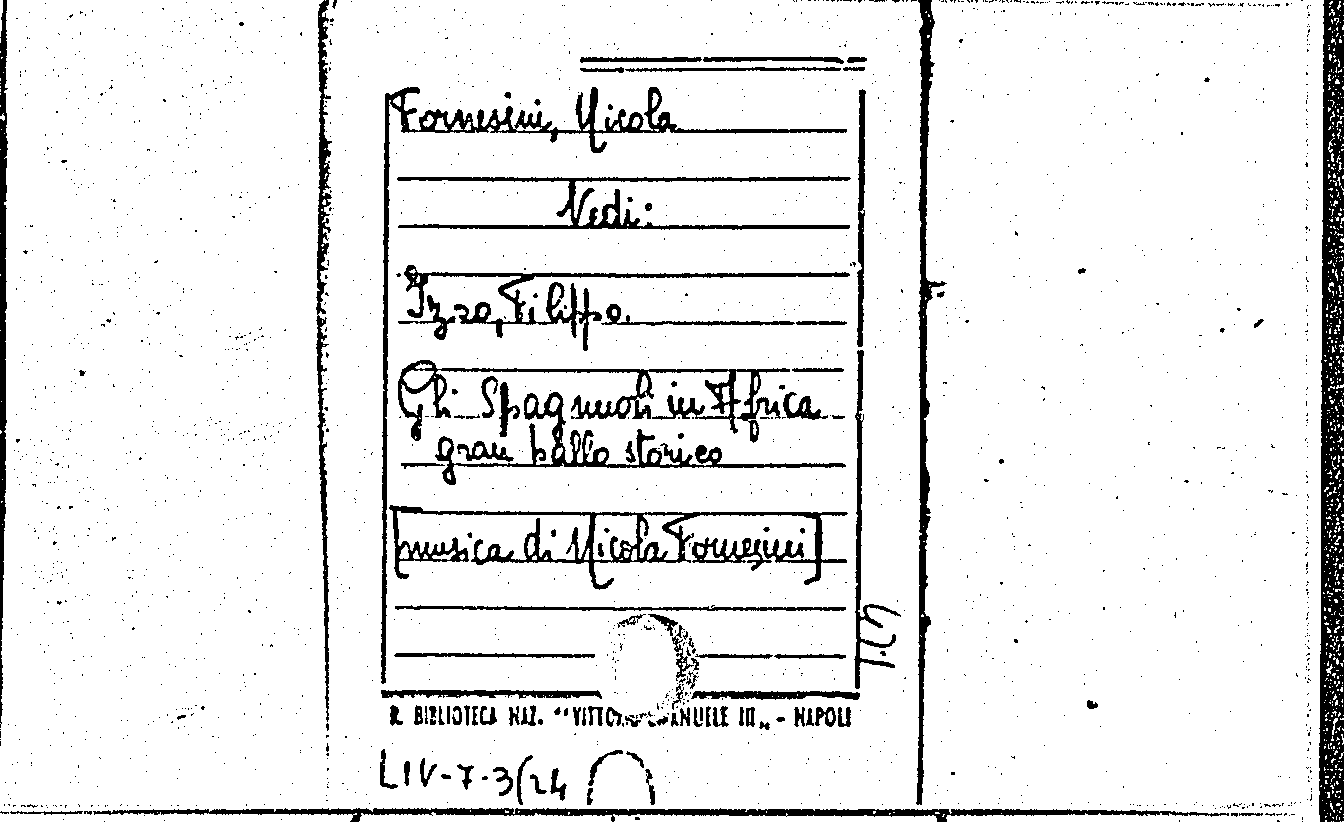 Fornesini, Nicola
Vedi:
Izzo, Filippo.
Gli Spagnuoli in Africa
gran ballo storico
[musica di Nicola Fornesini]
R. BIBLIOTECA NAZ. "VITTORIO EMANUELE III„ - NAPOLI
LIV-7-3(24